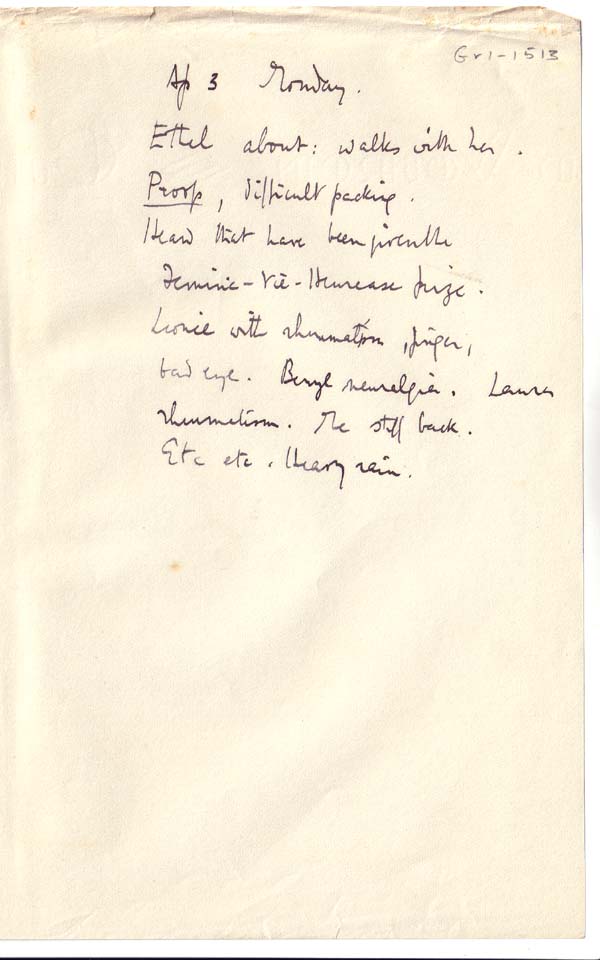 Gr1-1513
Ap 3 Monday.
Ethel about: walks with her.
Proofs, difficult packing.
Heard that have been given the
Femina-Vie-Heureuse prize.
Leonie with rheumatism, finger,
bad eye. Beryl neuralgia. Laura
rheumatism. Me stiff back.
Etc etc. Heavy rain.